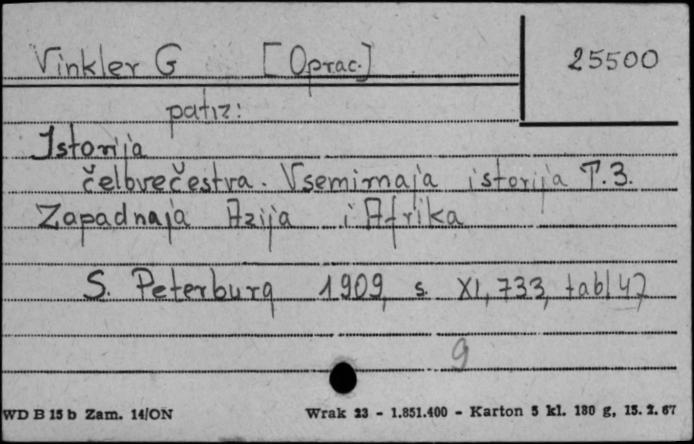 Vinkler G [Oprac.] 25500
patrz:
Istorija
čelovečestva. Vsemirnaja istorija T.3.
Zapadnaja Azija i Afrika
S. Peterburg 1909, s. XI, 733, tabl 47
9
WD B 15 b Zam. 14/ON Wrak 23 - 1.851.400 - Karton 5 kl. 180 g, 15. 2. 67